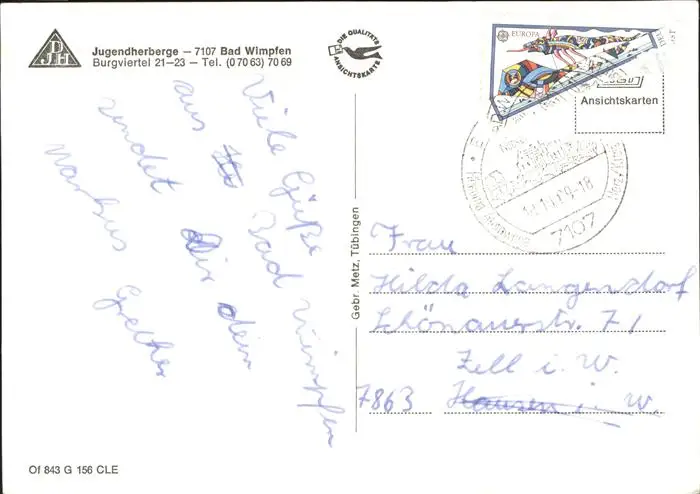 DJH
Jugendherberge – 7107 Bad Wimpfen
Burgviertel 21–23 – Tel. (0 70 63) 70 69
DIE QUALITÄTS
ANSICHTSKARTE
EUROPA
Ansichtskarten
7107
Viele Grüße
aus Bad Wimpfen
sendet Dir dein
Markus
Gebr. Metz, Tübingen
Frau
Hilda Langendorf
Schönauerstr. 71
Zell i. W.
7863 Hausen i. W.
Of 843 G 156 CLE